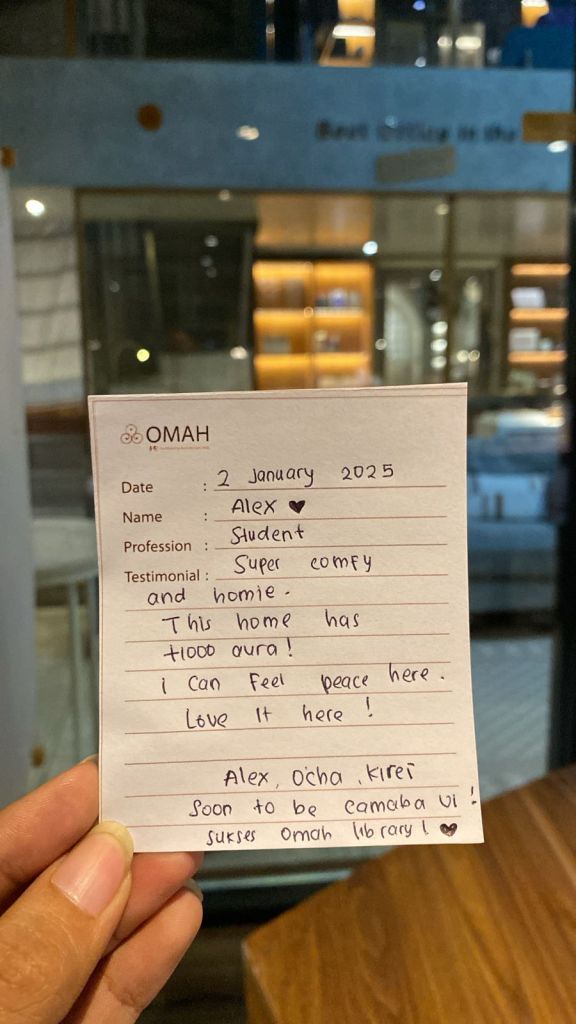 Best Office in the
OMAH
Date : 2 January 2025
Name : Alex ♥
Profession : Student
Testimonial : Super comfy
and homie.
This home has
+1000 aura!
i can feel peace here.
Love it here !
Alex, Ocha, Kirei
Soon to be camaba UI !
sukses Omah library ! ♥